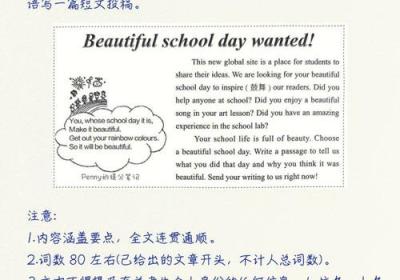 语写一篇短文投稿。
Beautiful school day wanted!
This new global site is a place for students to
share their ideas. We are looking for your beautiful
school day to inspire (鼓舞) our readers. Did you
help anyone at school? Did you enjoy a beautiful
song in your art lesson? Did you have an amazing
experience in the school lab?
Your school life is full of beauty. Choose
a beautiful school day. Write a passage to tell us
what you did that day and why you think it was
beautiful. Send your writing to us right now!
You, whose school day it is,
Make it beautiful.
Get out your rainbow colours.
So it will be beautiful.
Penny的提分笔记
注意:
1.内容涵盖要点,全文连贯通顺。
2.词数 80 左右(已给出的文章开头,不计入总词数)。